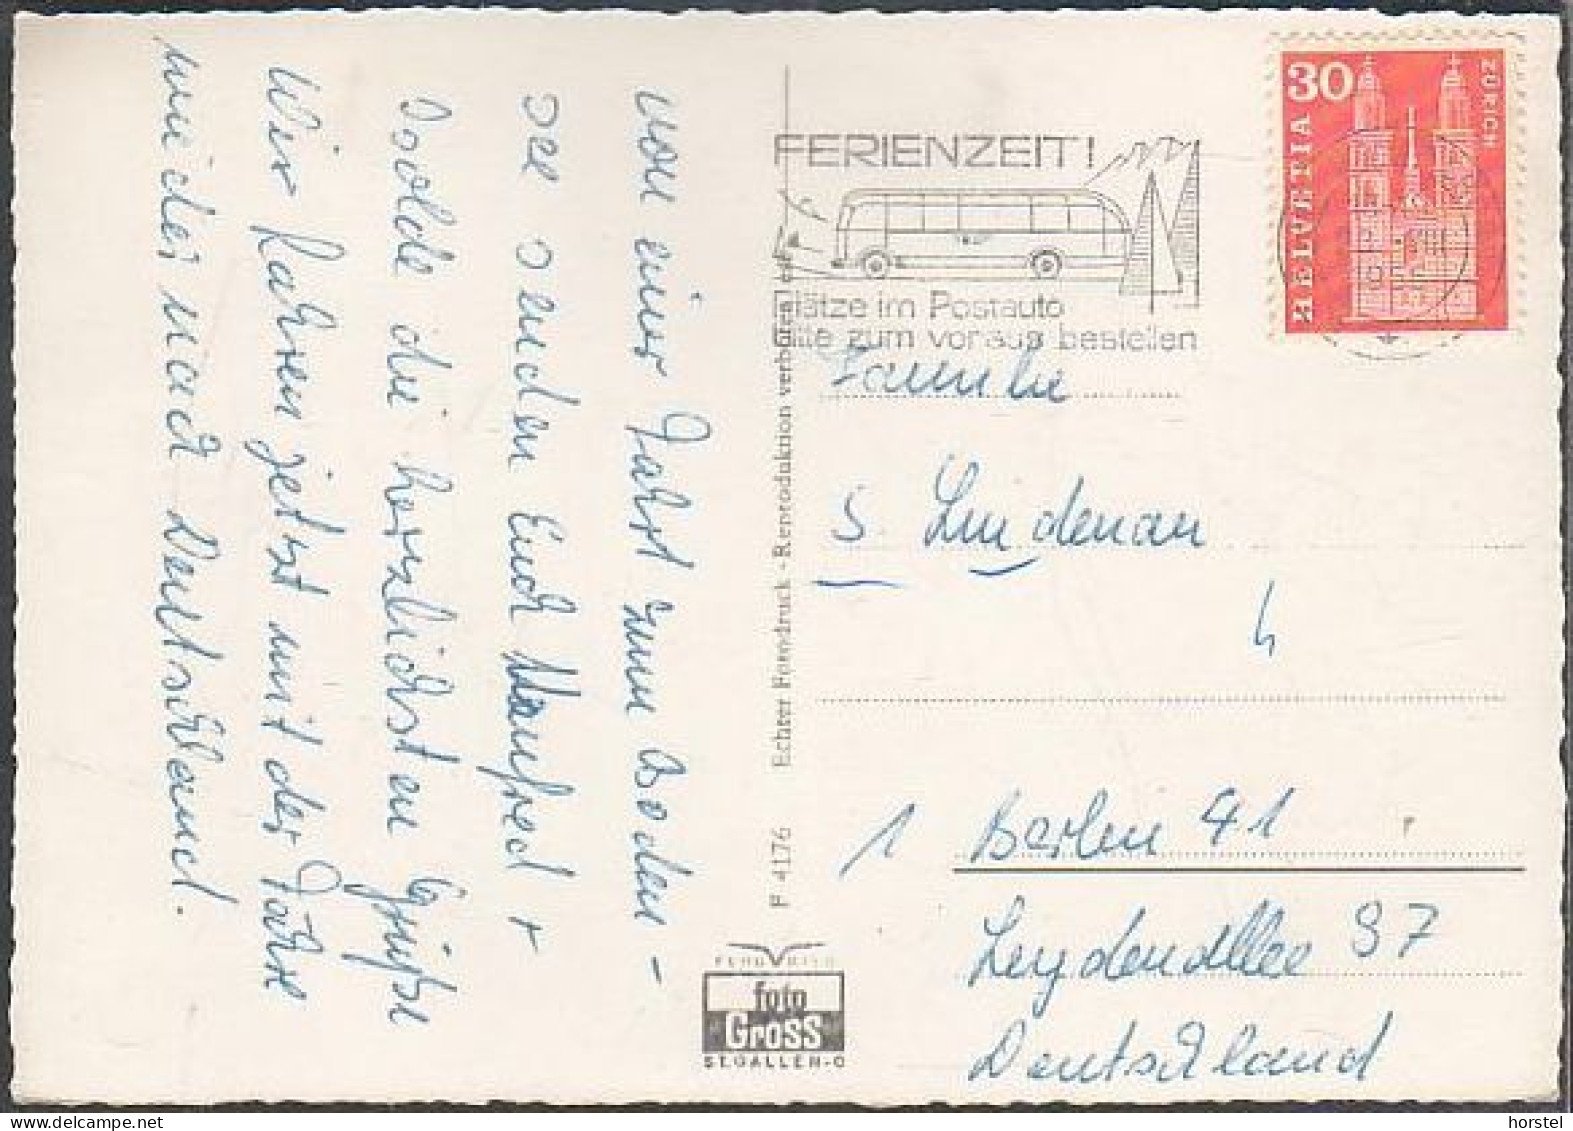 von einer Fahrt zum Boden-
see senden Euch Manfred +
Isolde die herzlichsten Grüße
Wir fahren jetzt mit der Fähre
wieder nach Deutschland.
FERIENZEIT!
lätze im Postauto
itte zum voraus bestellen
30
HELVETIA
ZÜRICH
Familie
S. Lindenau
1 Berlin 41
Leydenallee 97
Deutschland
F 4176 Echter Fotodruck - Reproduktion verboten
foto
Gross
ST.GALLEN-O
horstel